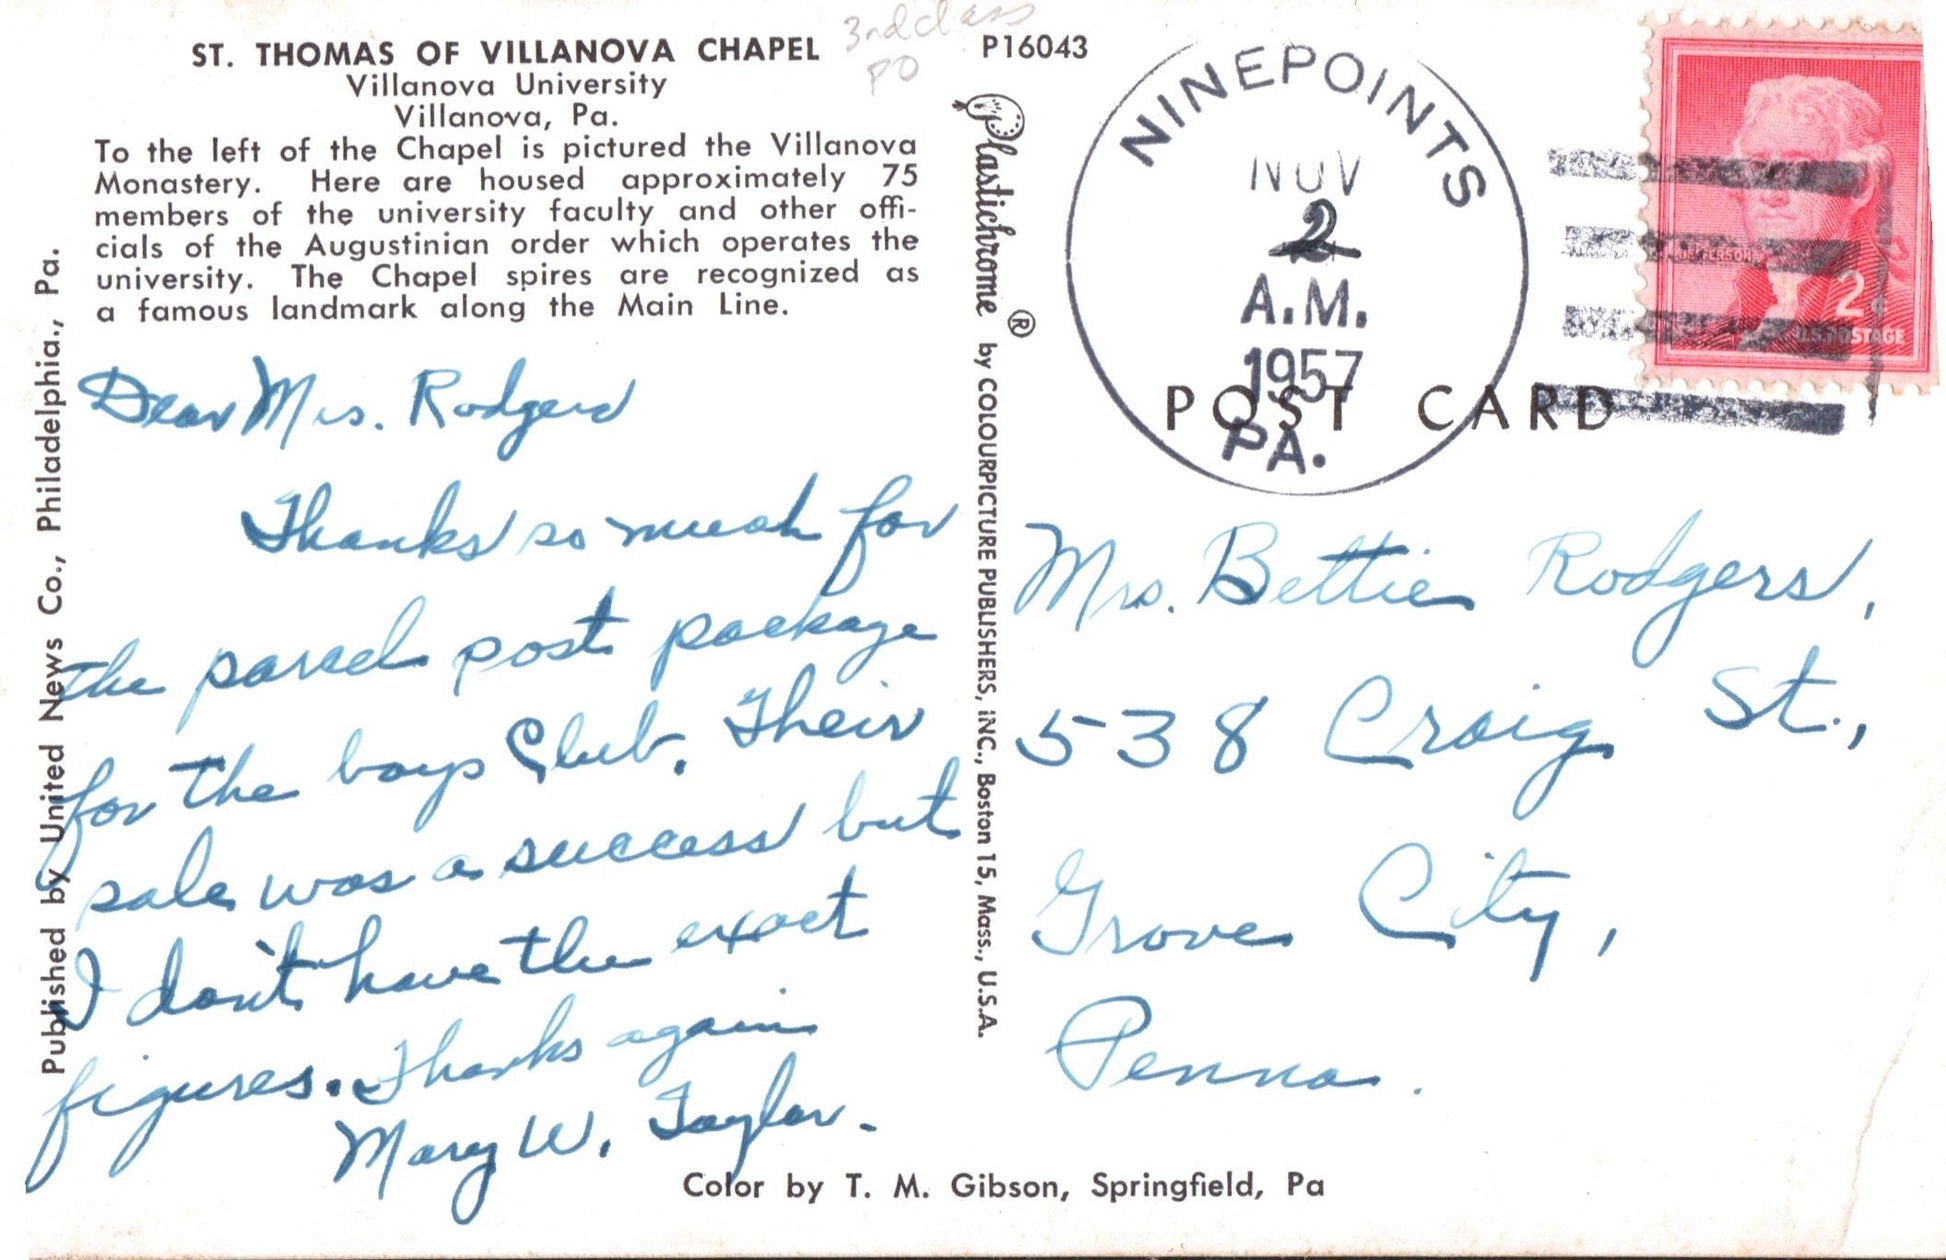 3rd class
PO
ST. THOMAS OF VILLANOVA CHAPEL
Villanova University
Villanova, Pa.
To the left of the Chapel is pictured the Villanova
Monastery. Here are housed approximately 75
members of the university faculty and other offi-
cials of the Augustinian order which operates the
university. The Chapel spires are recognized as
a famous landmark along the Main Line.
Published by United News Co., Philadelphia., Pa.
Dear Mrs. Rodgers
Thanks so much for
the parcel post package
for the boys Club. Their
sale was a success but
I don't have the exact
figures. Thanks again
Mary W. Taylor.
P16043
Plastichrome ® by COLOURPICTURE PUBLISHERS, INC., Boston 15, Mass., U.S.A.
NINEPOINTS
NOV
2
A.M.
1957
PA.
JEFFERSON
2¢
U.S. POSTAGE
POST CARD
Mrs. Bettie Rodgers,
538 Craig St.,
Grove City,
Penna.
Color by T. M. Gibson, Springfield, Pa